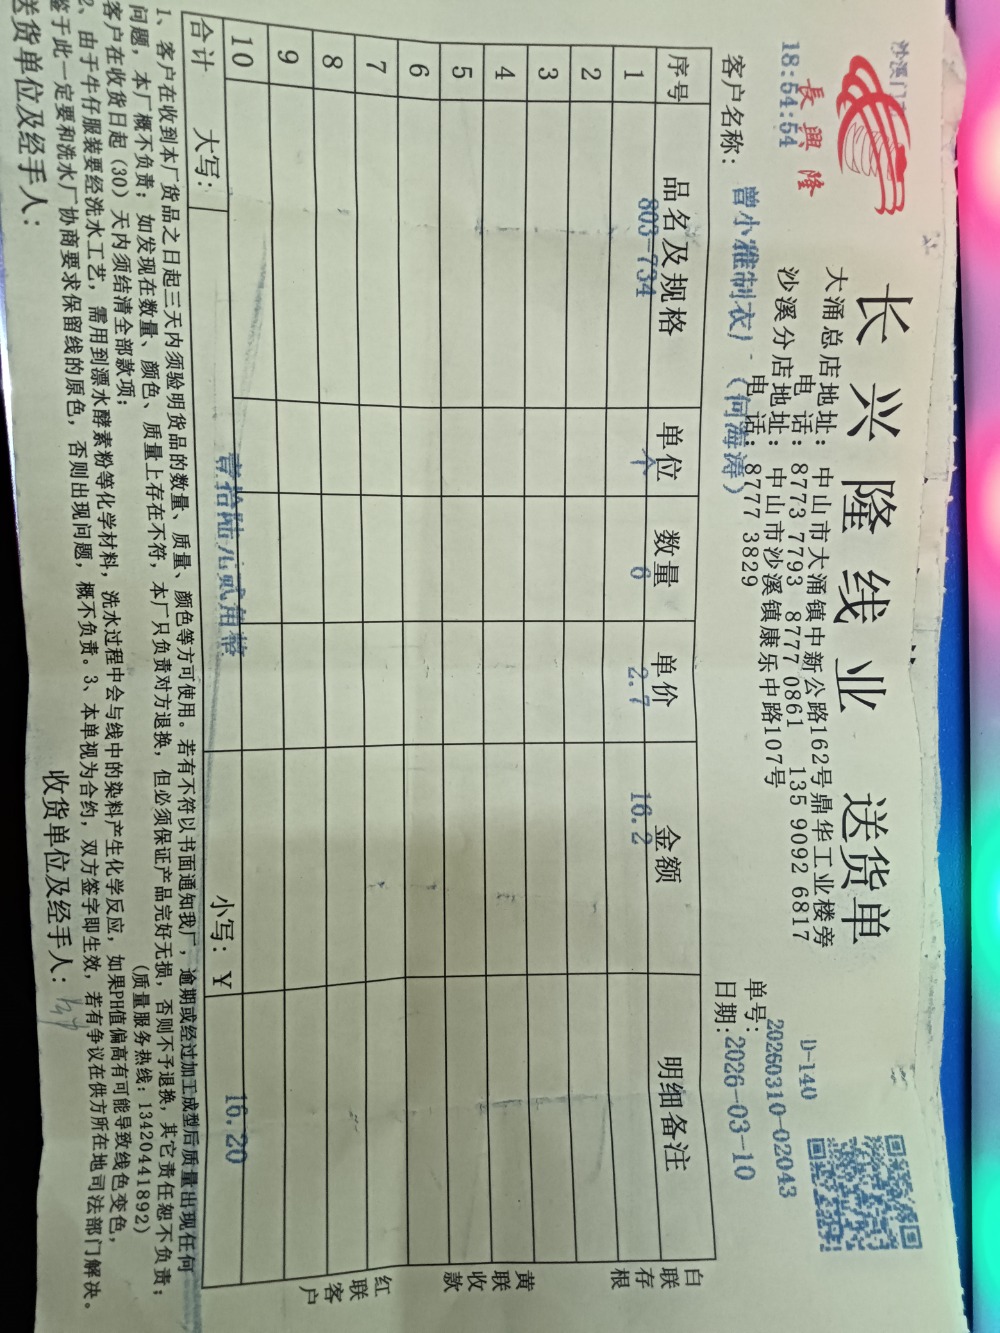 長興隆
18:54:54
长兴隆线业 送货单
大涌总店地址：中山市大涌镇中新公路162号鼎华工业楼旁
电 话：8773 7793 8777 0861 135 9092 6817
沙溪分店地址：中山市沙溪镇康乐中路107号
电 话：8777 3829
D-140
单号：20260310-02043
客户名称：曾小雅制衣厂（何海涛）
日期：2026-03-10
序号 品名及规格 单位 数量 单价 金额 明细备注
1 803-734 个 6 2.7 16.2
2
3
4
5
6
7
8
9
10
合计 大写： 壹拾陆元贰角整 小写：￥ 16.20
白联存根
黄联收款
红联客户
1、客户在收到本厂货品之日起三天内须验明货品的数量、质量、颜色等方可使用。若有不符以书面通知我厂，逾期或经过加工成型后质量出现任何
问题，本厂概不负责；如发现在数量、颜色、质量上存在不符，本厂只负责对方退换，但必须保证产品完好无损，否则不予退换，其它责任恕不负责；
客户在收货日起（30）天内须结清全部款项； （质量服务热线：13420441892）
2、由于牛仔服装要经洗水工艺，需用到漂水酵素粉等化学材料，洗水过程中会与线中的染料产生化学反应，如果PH值偏高有可能导致线色变色，
鉴于此一定要和洗水厂协商要求保留线的原色，否则出现问题，概不负责。3、本单视为合约，双方签字即生效，若有争议在供方所在地司法部门解决。
送货单位及经手人： 收货单位及经手人：